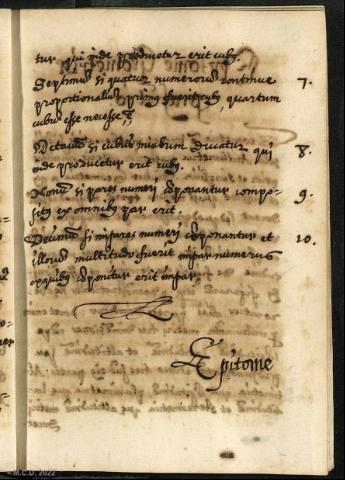 tur qui inde producetur erit cubus.
Septimum si quatuor numerorum continue 7.
proportionalium primus fuerit cubus, quartum
cubum esse necesse est
Octavum si cubus in cubum ducatur qui 8.
inde producetur erit cubus.
Nonum si pares numeri componantur compo- 9.
situs ex omnibus par erit.
Decimum si impares numeri componantur et 10.
illorum multitudo fuerit impar numerus
ex quibus componitur erit impar.
Epitome
©M.C.D. 2022